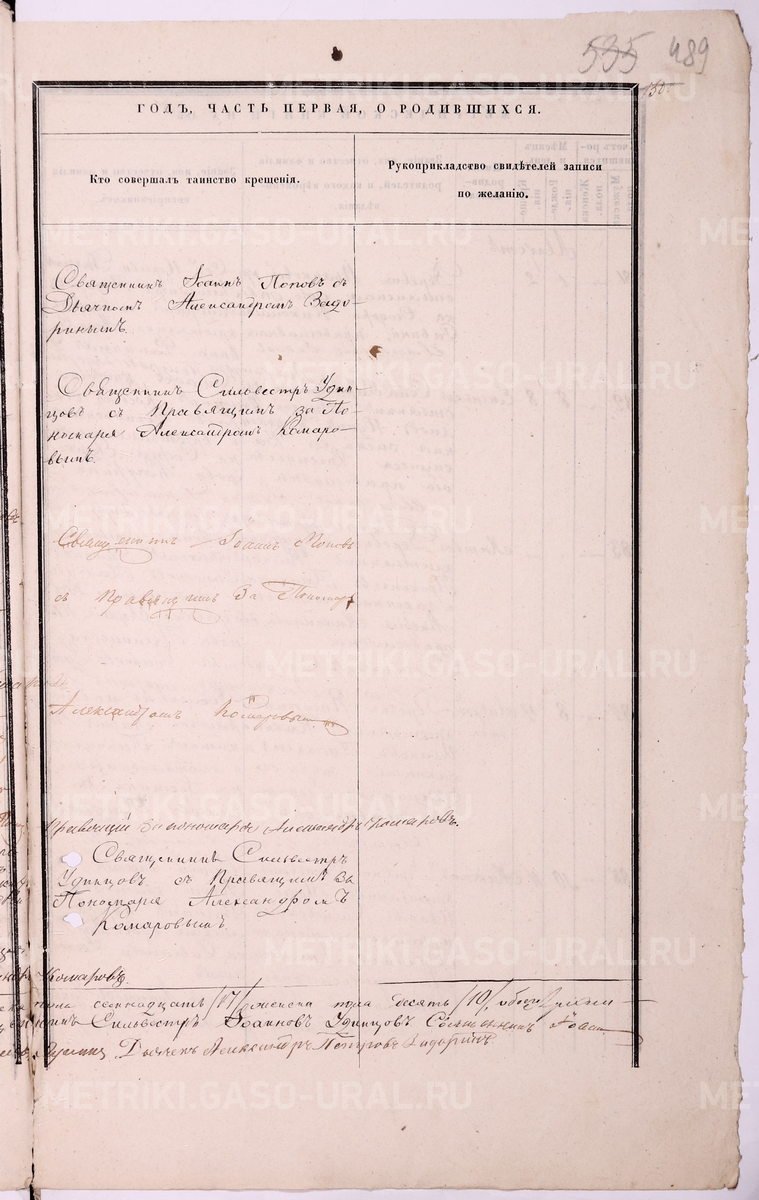 535 489
150
ГОДЪ, ЧАСТЬ ПЕРВАЯ, О РОДИВШИХСЯ.
Кто совершалъ таинство крещенія.
Рукоприкладство свидѣтелей записи
по желанію.
Священникъ Іоаннъ Поповъ съ
Дьячкомъ Александромъ Задо-
ринымъ.
Священникъ Сильвестръ Удин-
цовъ съ Правящимъ за По-
номаря Александромъ Комаро-
вымъ.
Священникъ Іоаннъ Поповъ
съ Правящимъ За Пономаря
Александромъ Комаровым
Правящій За пономаря Александръ Комаровъ.
Священникъ Сильвестръ
Удинцовъ съ Правящимъ За
Пономаря Александромъ
Комаровымъ.
Комаровъ.
пола семнадцать /17/ женска пола десять /10/, обоего
Сильвестръ Іоанновъ Удинцовъ Священникъ Іоаннъ
Дьячекъ Александръ Петровъ Задоринъ
METRIKI.GASO-URAL.RU